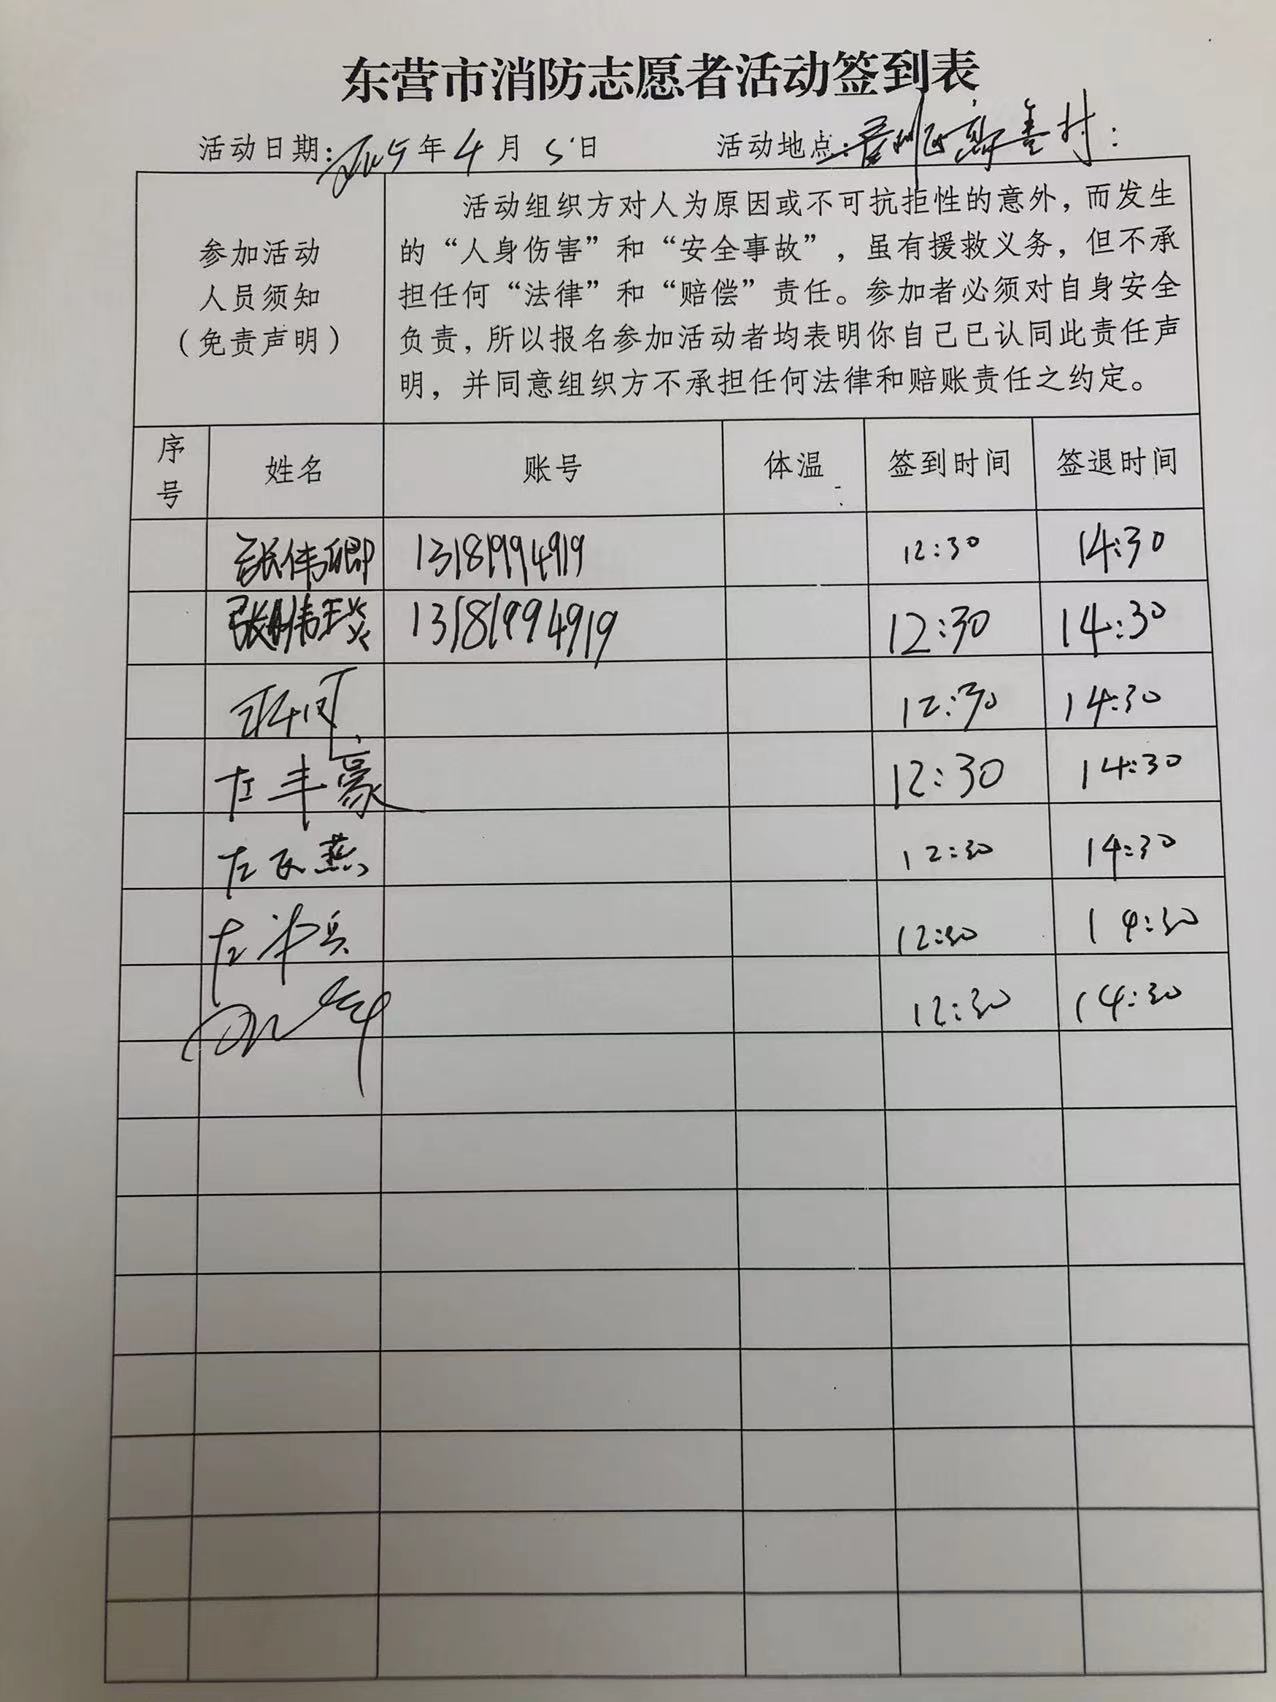 东营市消防志愿者活动签到表
活动日期: 年4月5日 活动地点: 村
参加活动
人员须知
(免责声明)
活动组织方对人为原因或不可抗拒性的意外，而发生
的“人身伤害”和“安全事故”，虽有援救义务，但不承
担任何“法律”和“赔偿”责任。参加者必须对自身安全
负责，所以报名参加活动者均表明你自己已认同此责任声
明，并同意组织方不承担任何法律和赔账责任之约定。
序号 姓名 账号 体温 签到时间 签退时间
张伟卿 13181994919 12:30 14:30
13181994919 12:30 14:30
12:30 14:30
左丰豪 12:30 14:30
左 燕 12:30 14:30
左 兵 12:30 14:30
12:30 14:30